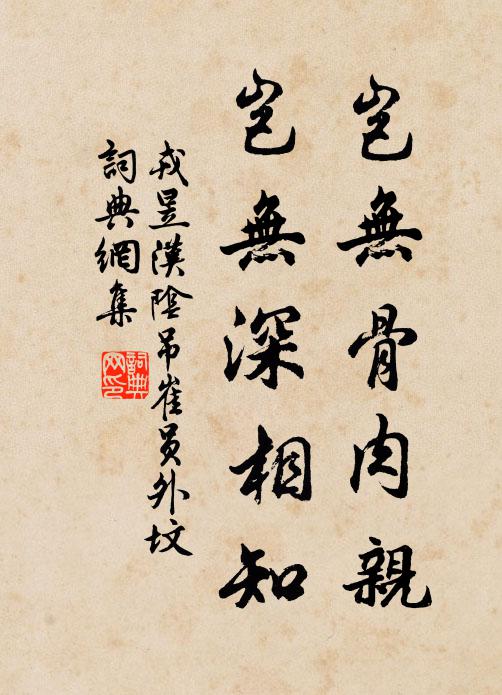 豈無骨肉親
豈無深相知
戎昱漢陰吊崔員外墳
詞典網集
詞典网印